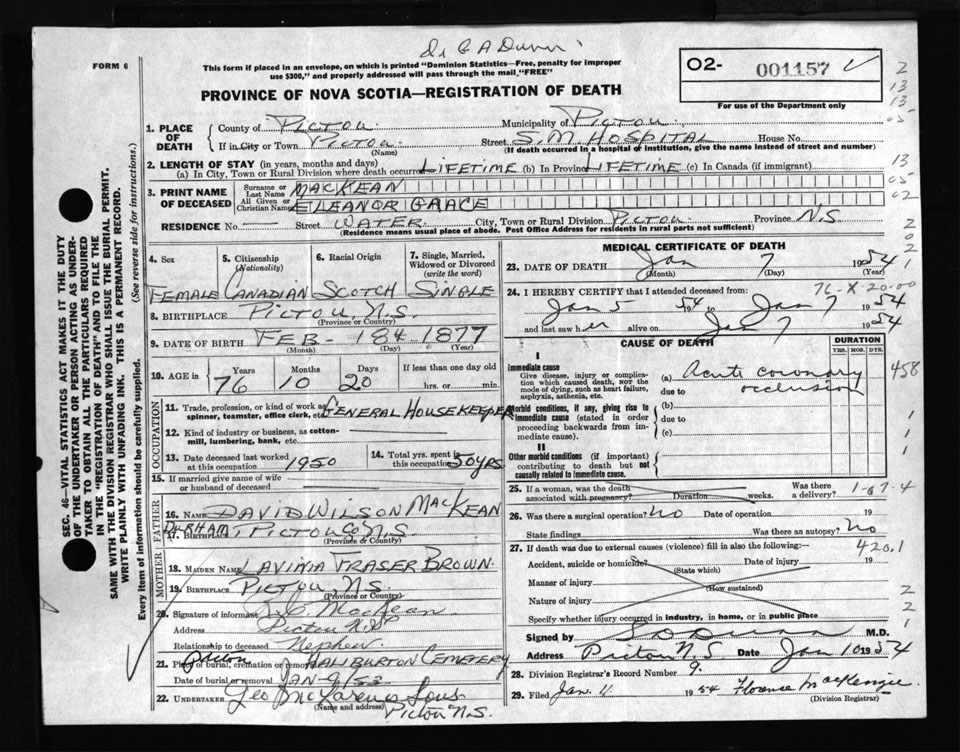 Dr G A Dunn
FORM 6
This form if placed in an envelope, on which is printed "Dominion Statistics—Free, penalty for improper
use $300," and properly addressed will pass through the mail "FREE"
O2- 001157
For use of the Department only
PROVINCE OF NOVA SCOTIA—REGISTRATION OF DEATH
1. PLACE OF DEATH
County of PICTOU Municipality of PICTOU
If in City or Town PICTOU Street S.M. HOSPITAL House No.
(Name) (If death occurred in a hospital or institution, give the name instead of street and number)
2. LENGTH OF STAY (in years, months and days)
(a) In City, Town or Rural Division where death occurred LIFETIME (b) In Province LIFETIME (c) In Canada (if immigrant)
3. PRINT NAME OF DECEASED
Surname or Last Name MACKEAN
All Given or Christian Names ELEANOR GRACE
RESIDENCE No. — Street WATER City, Town or Rural Division PICTOU Province N.S.
(Residence means usual place of abode. Post Office Address for residents in rural parts not sufficient)
4. Sex
5. Citizenship (Nationality)
6. Racial Origin
7. Single, Married, Widowed or Divorced (write the word)
FEMALE CANADIAN SCOTCH SINGLE
8. BIRTHPLACE PICTOU, N.S.
(Province or Country)
9. DATE OF BIRTH FEB- 18th 1877
(Month) (Day) (Year)
10. AGE in Years Months Days If less than one day old
76 10 20 hrs. or min.
OCCUPATION
11. Trade, profession, or kind of work as spinner, teamster, office clerk, etc. GENERAL HOUSEKEEPER
12. Kind of industry or business, as cotton-mill, lumbering, bank, etc.
13. Date deceased last worked at this occupation 1950
14. Total yrs. spent in this occupation 50 YRS
15. If married give name of wife or husband of deceased
FATHER
16. NAME DAVID WILSON MACKEAN
17. BIRTHPLACE DURHAM PICTOU CO N.S
(Province or Country)
MOTHER
18. MAIDEN NAME LAVINIA FRASER BROWN.
19. BIRTHPLACE PICTOU N.S.
(Province or Country)
20. Signature of informant MacKean
Address Pictou N.S
Relationship to deceased Nephew
21. Place of burial, cremation or removal Pictou HALIBURTON CEMETERY
Date of burial or removal JAN 9/53
22. UNDERTAKER Geo McLaren & Sons
(Name and address) Pictou N.S.
MEDICAL CERTIFICATE OF DEATH
23. DATE OF DEATH Jan 7 1954
(Month) (Day) (Year)
76-X-20.00
24. I HEREBY CERTIFY that I attended deceased from:
Jan 5 1954 to Jan 7 1954
and last saw her alive on Jan 7 1954
CAUSE OF DEATH
DURATION
YRS. MOS. DYS.
I
Immediate cause
Give disease, injury or complication which caused death, not the mode of dying, such as heart failure, asphyxia, asthenia, etc.
(a) Acute coronary
due to occlusion
458
Morbid conditions, if any, giving rise to immediate cause (stated in order proceeding backwards from immediate cause).
(b)
due to
(c)
II
Other morbid conditions (if important) contributing to death but not causally related to immediate cause.
25. If a woman, was the death associated with pregnancy? Duration weeks. Was there a delivery? 1-67-4
26. Was there a surgical operation? No Date of operation 19
State findings Was there an autopsy? No
27. If death was due to external causes (violence) fill in also the following:— 420.1
Accident, suicide or homicide? Date of injury 19
(State which)
Manner of injury
(How sustained)
Nature of injury
Specify whether injury occurred in industry, in home, or in public place
Signed by Dunn M.D.
Address Pictou N.S Date Jan 10 1954
28. Division Registrar's Record Number 9.
29. Filed Jan. 11 1954 Florence MacKenzie.
(Division Registrar)
SEC. 46—VITAL STATISTICS ACT MAKES IT THE DUTY
OF THE UNDERTAKER OR PERSON ACTING AS UNDER-
TAKER TO OBTAIN ALL THE PARTICULARS REQUIRED
IN THE "REGISTRATION OF DEATH" AND TO FILE THE
SAME WITH THE DIVISION REGISTRAR WHO SHALL ISSUE THE BURIAL PERMIT.
WRITE PLAINLY WITH UNFADING INK. THIS IS A PERMANENT RECORD.
Every item of information should be carefully supplied. (See reverse side for instructions.)
2
13
13
05
13
05
02
2
0
2
1
1
1
1
2
2
1